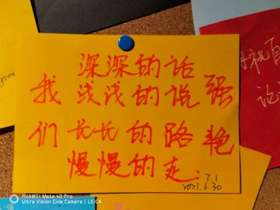 深深的话
我浅浅的说强
们长长的路艳
慢慢的走
7.1
6.30
HUAWEI Mate 40 Pro
Ultra Vision Cine Camera | LEICA